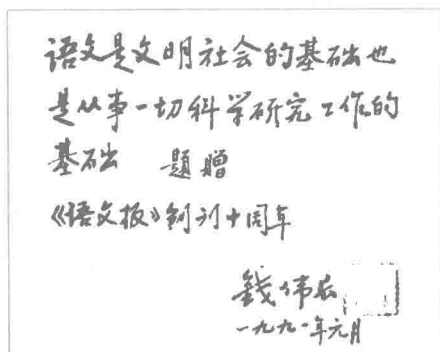 语文是文明社会的基础也
是从事一切科学研究工作的
基础 题赠
《语文报》创刊十周年
錢伟长
一九九一年元月